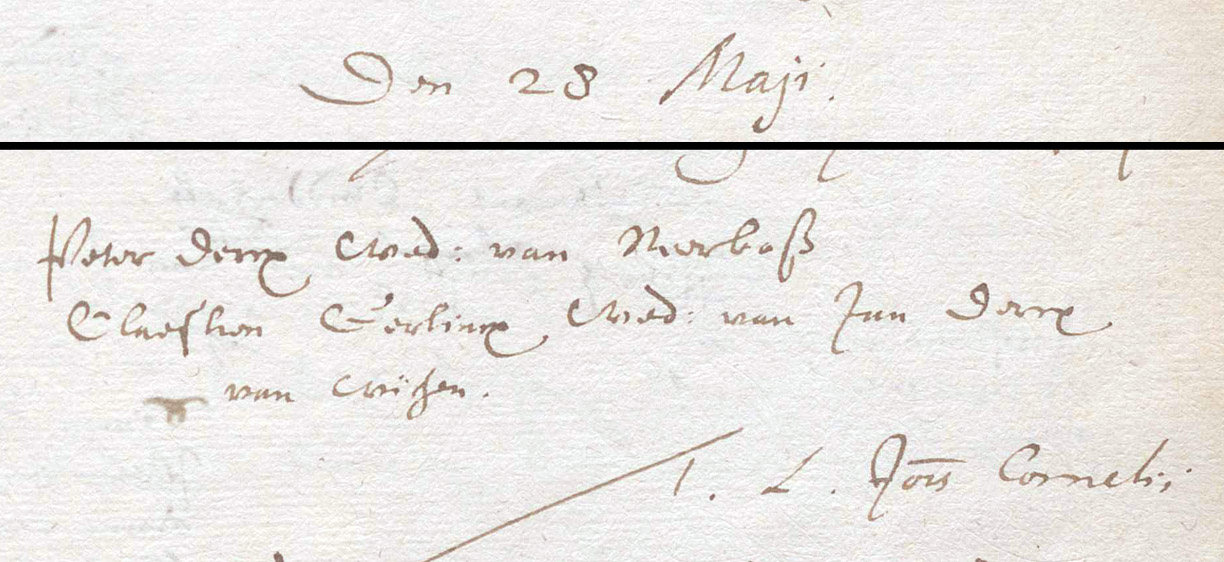 Den 28 Maji.
Peter Derrx Wed: van Neerboß
Claesken Gerlinx Wed: van Jan Derrx
van Wichen.
T. L. Jois Cornelii